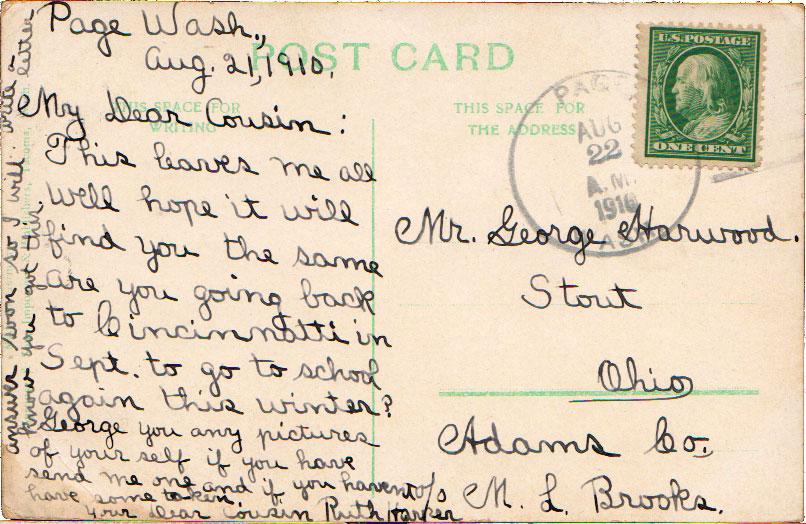 Page Wash.,
Aug. 21, 1910.
POST CARD
THIS SPACE FOR
WRITING
My Dear Cousin:
This leaves me all
well hope it will
find you the same
are you going back
to Cincinnatti in
Sept. to go to school
again this winter?
George you any pictures
of your self if you have
send me one and if you havent
have some taken.
Your dear cousin Ruth Harker
answer soon so I will
know you got this
letter
THIS SPACE FOR
THE ADDRESS
U.S. POSTAGE
ONE CENT
AUG
22
A.M.
1910
WASH
Mr. George Harwood.
Stout
Ohio
Adams Co.
c/o M. L. Brooks.